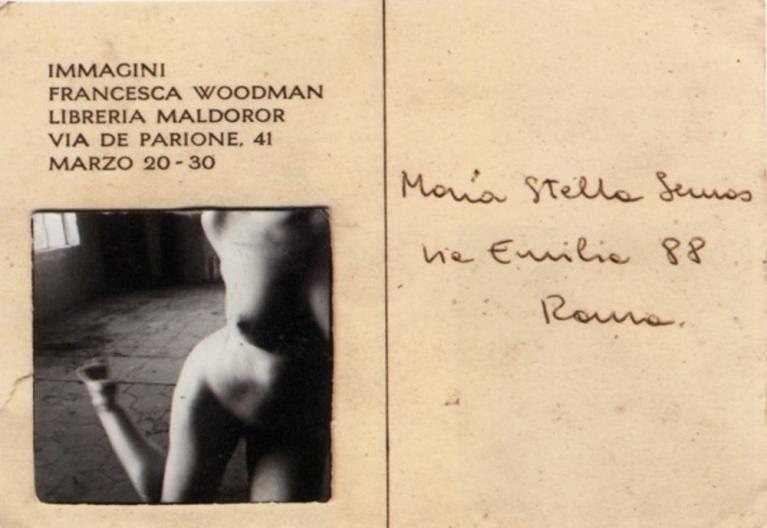 IMMAGINI
FRANCESCA WOODMAN
LIBRERIA MALDOROR
VIA DE PARIONE, 41
MARZO 20-30
Maria Stella
Via Emilia 88
Roma.